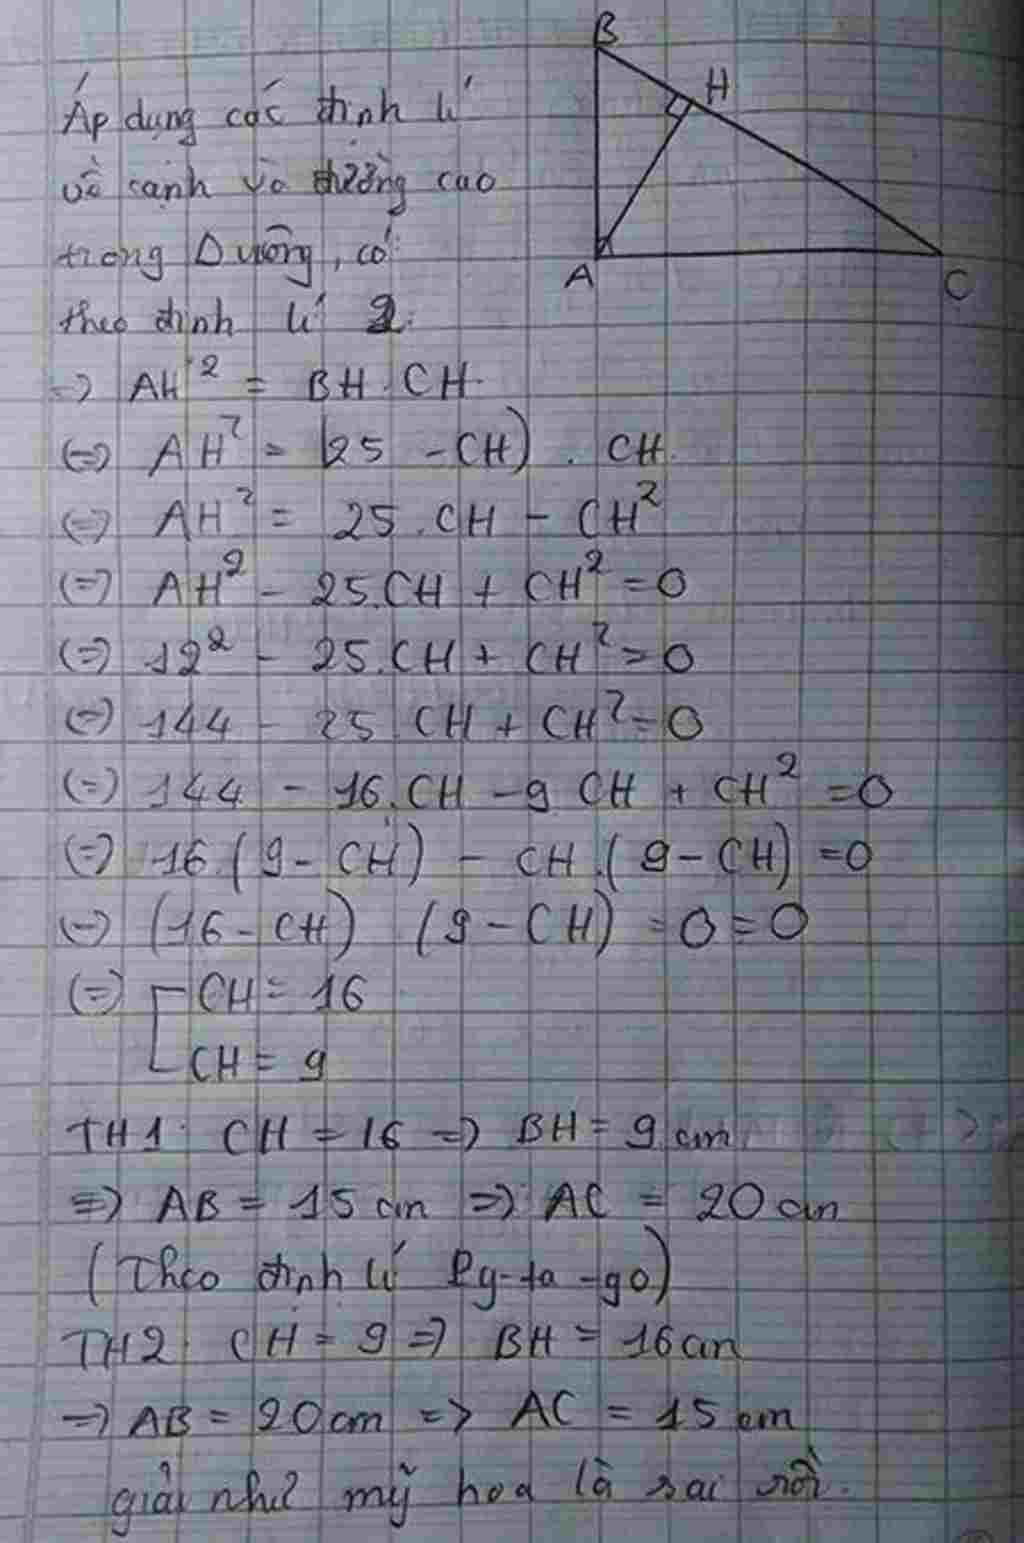 B
H
Áp dụng các định lí
về cạnh và đường cao
trong Δ vuông, có:
A
C
theo định lí 2:
=> AH² = BH.CH
(=) AH² = (25 - CH) . CH
(=) AH² = 25.CH - CH²
(=) AH² - 25.CH + CH² = 0
(=) 12² - 25.CH + CH² = 0
(=) 144 - 25.CH + CH² = 0
(=) 144 - 16.CH - 9.CH + CH² = 0
(=) 16.(9 - CH) - CH.(9 - CH) = 0
(=) (16 - CH) (9 - CH) = 0 = 0
(=) [ CH = 16
CH = 9
TH1: CH = 16 => BH = 9 cm
=> AB = 15 cm => AC = 20 cm
(Theo định lí Py-ta-go)
TH2: CH = 9 => BH = 16 cm
=> AB = 20 cm => AC = 15 cm
giải như mỹ hoa là sai rồi.